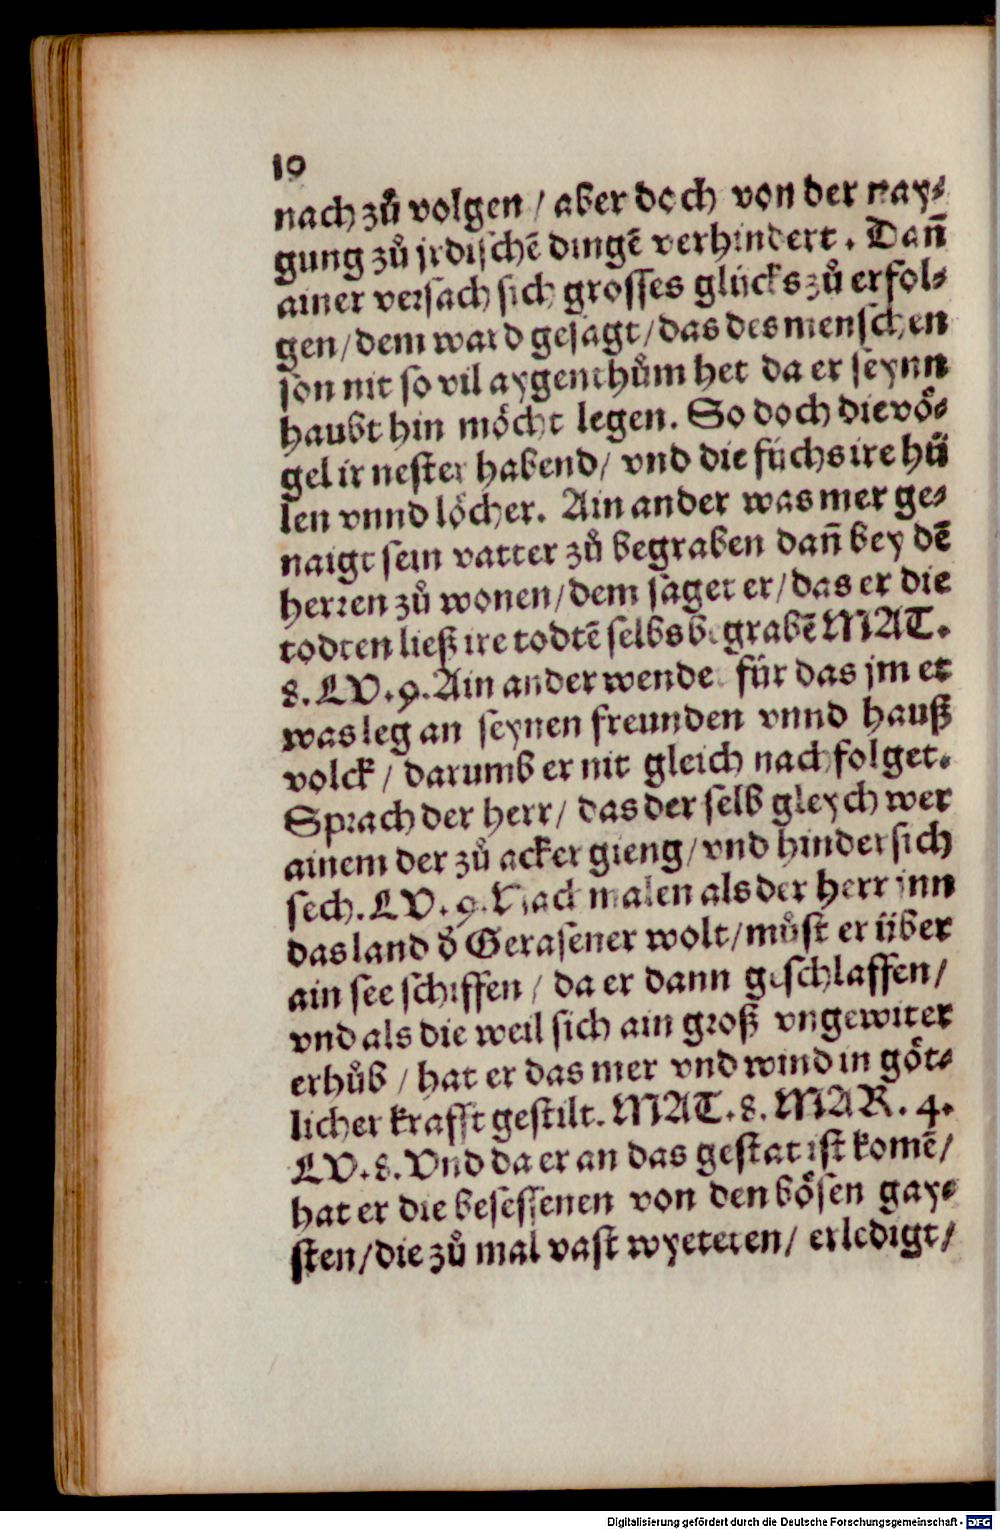 10
nach zů volgen / aber doch von der nay⸗
gung zů jrdischẽ dingẽ verhindert . Dañ
ainer versach sich grosses glücks zů erfol⸗
gen / dem ward gesagt / das des menschen
son nit so vil aygenthům het da er seynn
haubt hin möcht legen. So doch die vö⸗
gel ir nester habend / vnd die füchs ire hü
len vnnd löcher. Ain ander was mer ge⸗
naigt sein vatter zů begraben dañ bey dẽ
herren zů wonen / dem saget er / das er die
todten ließ ire todtẽ selbs begrabẽ MAT.
8. LV. 9. Ain ander wendet für das jm et
was leg an seynen freunden vnnd hauß
volck / darumb er nit gleich nachfolget.
Sprach der herr / das der selb gleych wer
ainem der zů acker gieng / vnd hindersich
sech. LV. 9. Nachmalen als der herr inn
das land d̕ Gerasener wolt / můst er über
ain see schiffen / da er dann geschlaffen /
vnd als die weil sich ain groß vngewiter
erhůb / hat er das mer vnd wind in göt⸗
licher krafft gestilt. MAT. 8. MAR. 4.
LV. 8. Vnd da er an das gestat ist komẽ /
hat er die besessenen von den bösen gay⸗
sten / die zů mal vast wyeteten / erledigt /
Digitalisierung gefördert durch die Deutsche Forschungsgemeinschaft - DFG